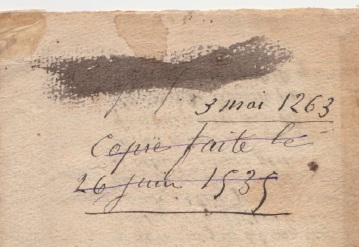 3 mai 1263
Copie faite le
26 juin 1535